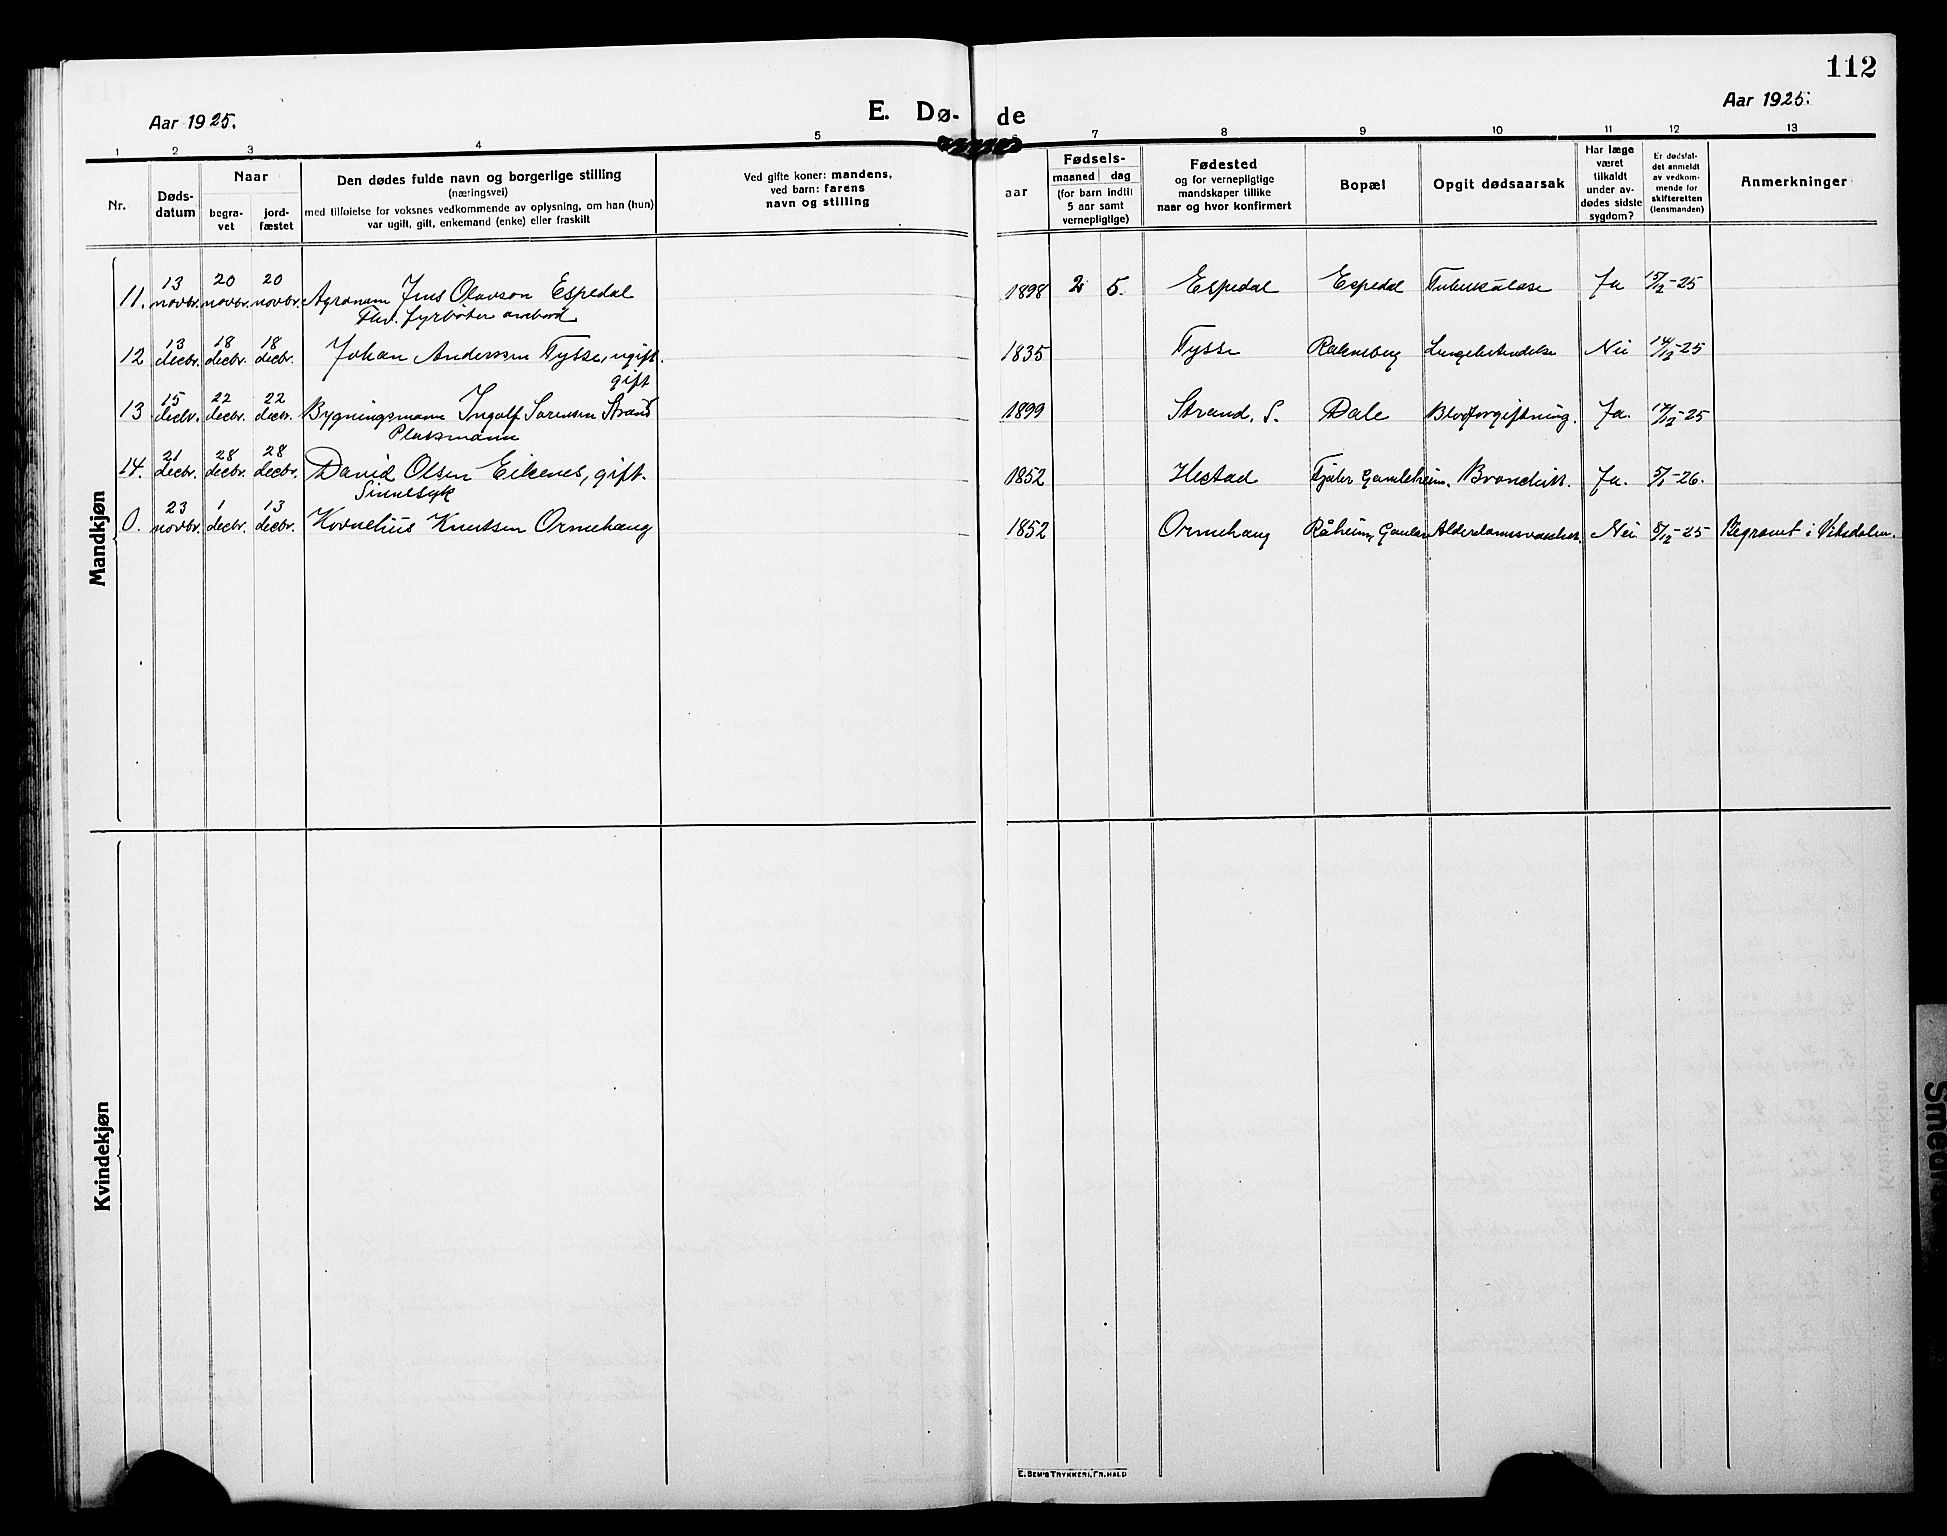 112
Aar 1925.
E. Dø- de
Aar 1925.
1 2 3 4 5 6 7 8 9 10 11 12 13
Nr.
Døds-
datum
Naar
begra-
vet
jord-
fæstet
Den dødes fulde navn og borgerlige stilling
(næringsvei)
med tilføielse for voksnes vedkommende av oplysning, om han (hun)
var ugift, gift, enkemand (enke) eller fraskilt
Ved gifte koner: mandens,
ved barn: farens
navn og stilling
Fødsels-
aar
maaned dag
(for barn indtil
5 aar samt
vernepligtige)
Fødested
og for vernepligtige
mandskaper tillike
naar og hvor konfirmert
Bopæl
Opgit dødsaarsak
Har læge
været
tilkaldt
under av-
dødes sidste
sygdom?
Er dødsfal-
det anmeldt
av vedkom-
mende for
skifteretten
(lensmanden)
Anmerkninger
Mandkjøn
11. 13 novbr. 20 novbr. 20 novbr. Agronom Jens Olavson Espedal 1898 2 5. Espedal Espedal Tuberkulose Ja 15/12-25
Fhv. fyrbøter ombord
12 13 decbr. 18 decbr. 18 decbr. Johan Anderssen Tysse, ugift. 1835 Tysse Lungebetendelse Nei 14/12-25
gift
13 15 decbr. 22 decbr. 22 decbr. Bygningsmann Ingolf Sørensen Strand 1899 Strand, S. Dale Blodforgiftning. Ja. 17/12-25
Plassmann
14. 21 decbr. 28 decbr. 28 decbr. David Olsen Eikenes, gift. 1852 Hestad Fjaler Gamleheim. Bronchitt. Ja. 5/1-26.
Sinnesyk
0. 23 novbr. 1 decbr. 13 decbr. Kornelius Knutsen Ormehaug 1852 Ormehaug Råheim, Gaular Alderdomssvakhet. Nei 5/12-25 Begravet i Viksdalen.
Kvindekjøn
E. SEM'S TRYKKERI, FR.HALD